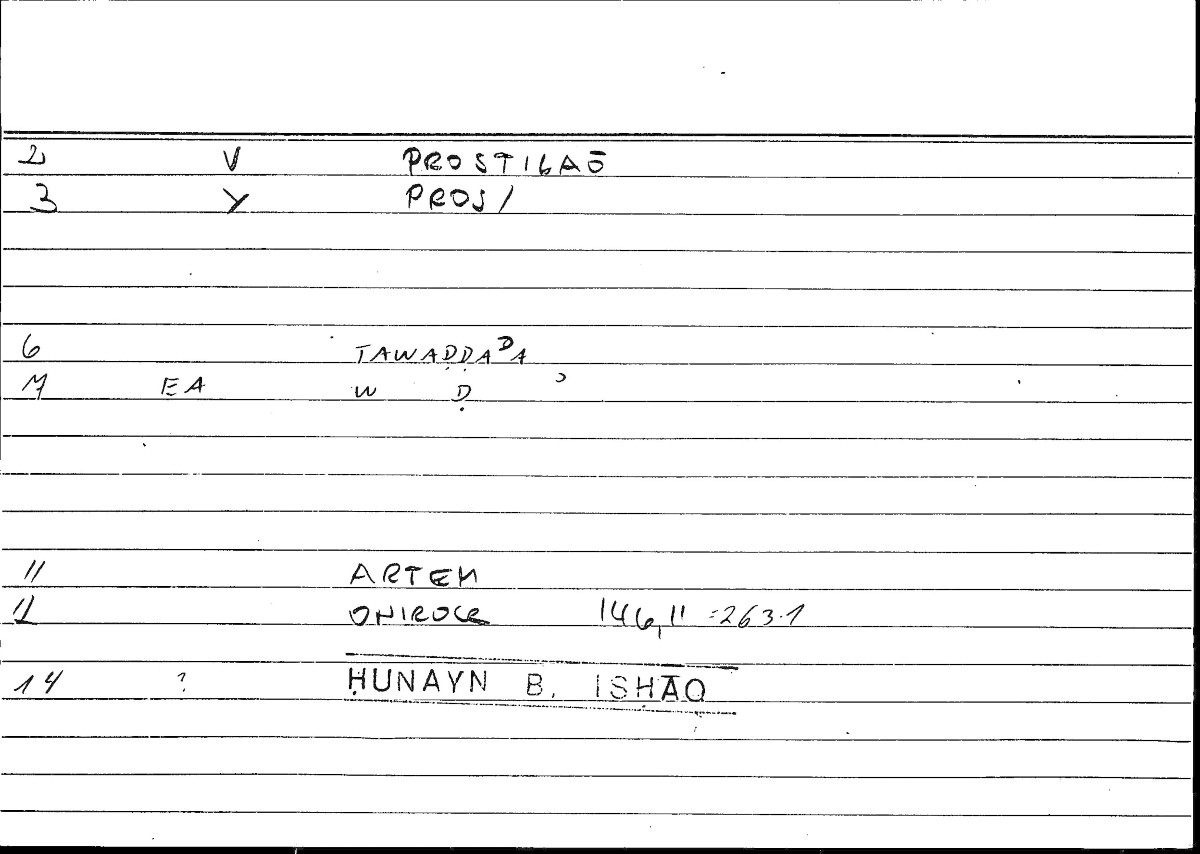 2 V PROSTIGAŌ
3 Y PROS/
6 TAWAḌḌAʾA
7 EA W Ḍ ʾ
11 ARTEM
12 ONIROCR 146,11 = 263.1
14 ? ḤUNAYN B. ISḤĀQ